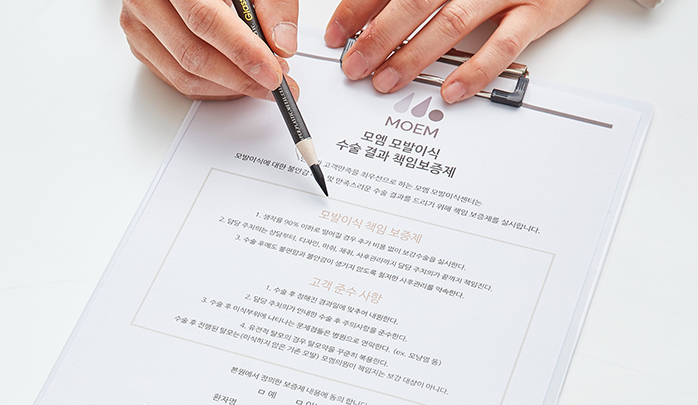 MOEM
모엠 모발이식
수술 결과 책임보증제
고객만족을 최우선으로 하는 모엠 모발이식센터는
모발이식에 대한 불안감 및 만족스러운 수술 결과를 드리기 위해 책임 보증제를 실시합니다.
모발이식 책임 보증제
1. 생착률 90% 이하로 떨어질 경우 추가 비용 없이 보강수술을 실시한다.
2. 담당 주치의는 상담부터, 디자인, 마취, 채취, 사후관리까지 담당 주치의가 끝까지 책임진다.
3. 수술 후에도 불편함과 불안감이 생기지 않도록 철저한 사후관리를 약속한다.
고객 준수 사항
1. 수술 후 정해진 경과일에 맞추어 내원한다.
2. 담당 주치의가 안내한 수술 후 주의사항을 준수한다.
3. 수술 후 이식부위에 나타나는 문제점들은 병원으로 연락한다. (ex. 모낭염 등)
4. 유전적 탈모의 경우 탈모약을 꾸준히 복용한다.
수술 후 진행된 탈모는(이식하지 않은 기존 모발) 모엠의원이 책임지는 보강 대상이 아니다.
본원에서 정의한 보증제 내용에 동의 합니다
□ 예 □
환자명